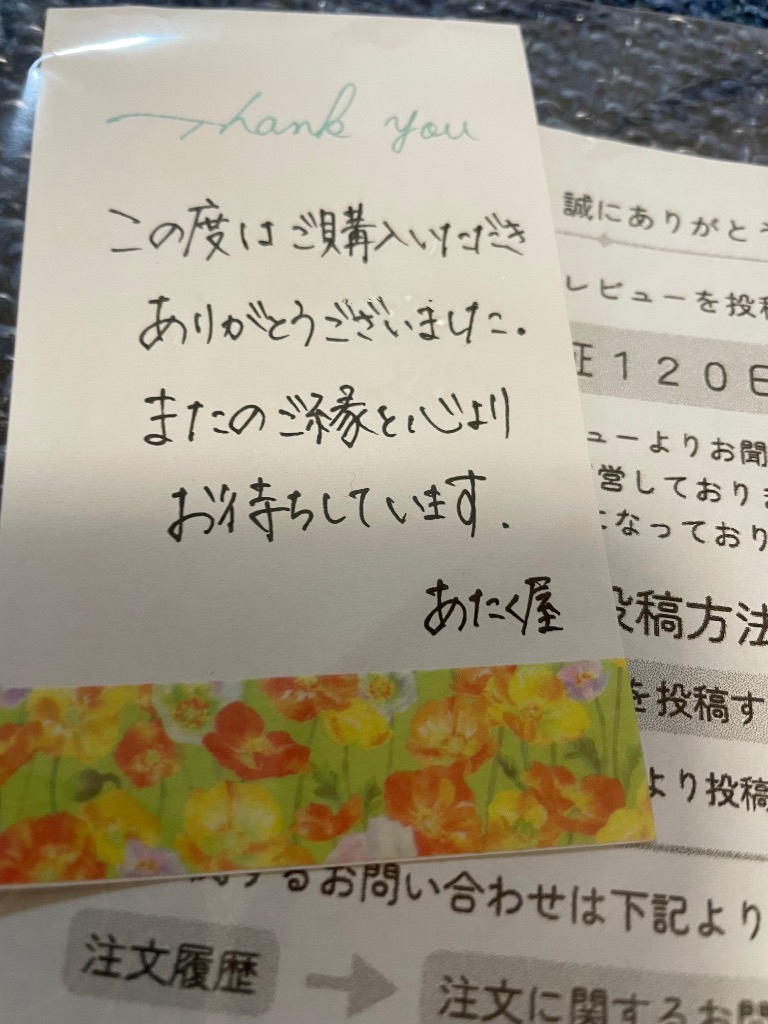 Thank you
この度はご購入いただき
ありがとうございました.
またのご縁を心より
お待ちしています.
あたく屋
誠にありがと
レビューを投稿
証120日
ューよりお聞
営しておりま
になっており
投稿方法
を投稿す
より投稿
するお問い合わせは下記より
注文履歴
注文に関するお問